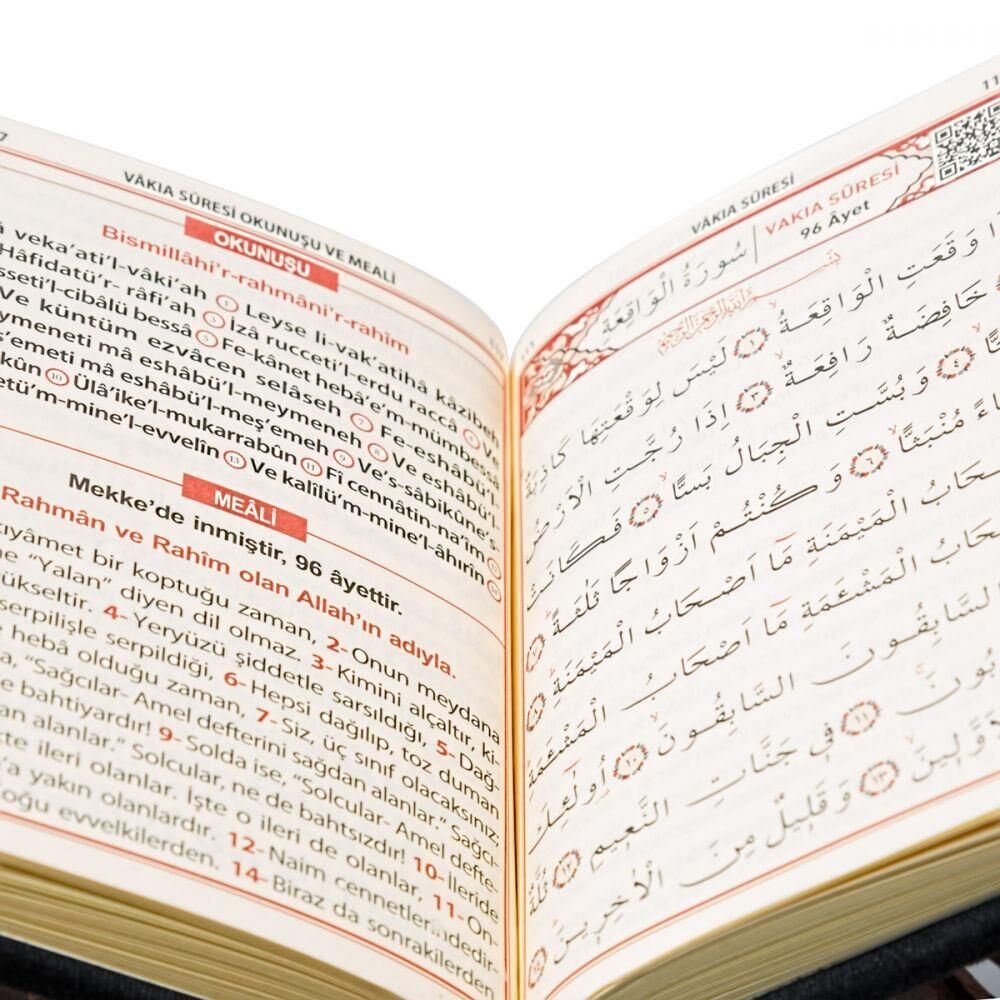 VÂKIA SÛRESİ OKUNUŞU VE MEALİ
OKUNUŞU
Bismillâhi'r-rahmâni'r-rahîm
veka'ati'l-vâki'ah ① Leyse li-vak'atihâ kâzibeh
Hâfidatü'r- râfi'ah ③ İzâ rucceti'l-erdu raccâ ④ Ve
sseti'l-cibâlü bessâ ⑤ Fe-kânet hebâ'e'm-mümbessâ
Ve küntüm ezvâcen selâseh ⑦ Fe-eshâbü'l-
ymeneti mâ eshâbü'l-meymeneh ⑧ Ve eshâbü'l-
ş'emeti mâ eshâbü'l-meş'emeh ⑨ Ve's-sâbikûne's-
kûn ⑩ Ülâ'ike'l-mukarrabûn ⑪ Fî cennâtin-na'îm ⑫
etü'm-mine'l-evvelîn ⑬ Ve kalîlü'm-mine'l-âhırîn ⑭
MEÂLİ
Mekke'de inmiştir, 96 âyettir.
Rahmân ve Rahîm olan Allah'ın adıyla.
kıyâmet bir koptuğu zaman, 2- Onun meydana
ne "Yalan" diyen dil olmaz. 3- Kimini alçaltır, ki-
yükseltir. 4- Yeryüzü şiddetle sarsıldığı, 5- Dağ-
serpilişle serpildiği, 6- Hepsi dağılıp, toz duman
heba olduğu zaman, 7- Siz, üç sınıf olacaksınız;
"Sağcılar- Amel defterini sağdan alanlar." Sağcı-
bahtiyardır! 9- Solda ise, "Solcular- Amel defte-
an alanlar." Solcular, ne de bahtsızdır! 10- İleride
te ileri olanlar. İşte o ileri de olanlar, 11- On-
'a yakın olanlardır. 12- Naim cennetlerindedir-
Çoğu evvelkilerden. 14- Biraz da sonrakilerden
11
VÂKIA SÛRESİ
سُورَةُ الْوَاقِعَةِ
VAKIA SÛRESİ
96 Âyet
وَقَعَتِ الْوَاقِعَةُ ﴿١﴾ لَيْسَ لِوَقْعَتِهَا كَاذِبَةٌ
خَافِضَةٌ رَافِعَةٌ ﴿٣﴾ اِذَا رُجَّتِ الْاَرْضُ
﴿٤﴾ وَبُسَّتِ الْجِبَالُ بَسًّا ﴿٥﴾ فَكَانَتْ
مُنْبَثًّا ﴿٦﴾ وَكُنْتُمْ اَزْوَاجًا ثَلٰثَةً ﴿٧﴾
الْمَيْمَنَةِ مَا اَصْحَابُ الْمَيْمَنَةِ ﴿٨﴾
الْمَشْئَمَةِ مَا اَصْحَابُ الْمَشْئَمَةِ
السَّابِقُونَ السَّابِقُونَ ﴿١٠﴾ اُولٰئِكَ
﴿١١﴾ فِي جَنَّاتِ النَّعِيمِ ﴿١٢﴾ ثُلَّةٌ
﴿١٣﴾ وَقَلِيلٌ مِنَ الْاٰخِرِينَ ﴿١٤﴾